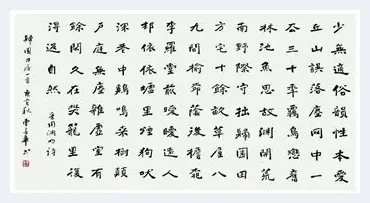 少無適俗韻性本愛
丘山誤落塵網中一
去三十年羈鳥戀舊
林池魚思故淵開荒
南野際守拙歸園田
方宅十餘畝草屋八
九間榆柳蔭後檐桃
李羅堂前曖曖遠人
邨依依墟里煙狗吠
深巷中雞鳴桑樹顛
户庭無塵雜虛室有
餘閒久在樊籠里復
得返自然
晉陶淵明詩
歸園田居一首 庚寅秋